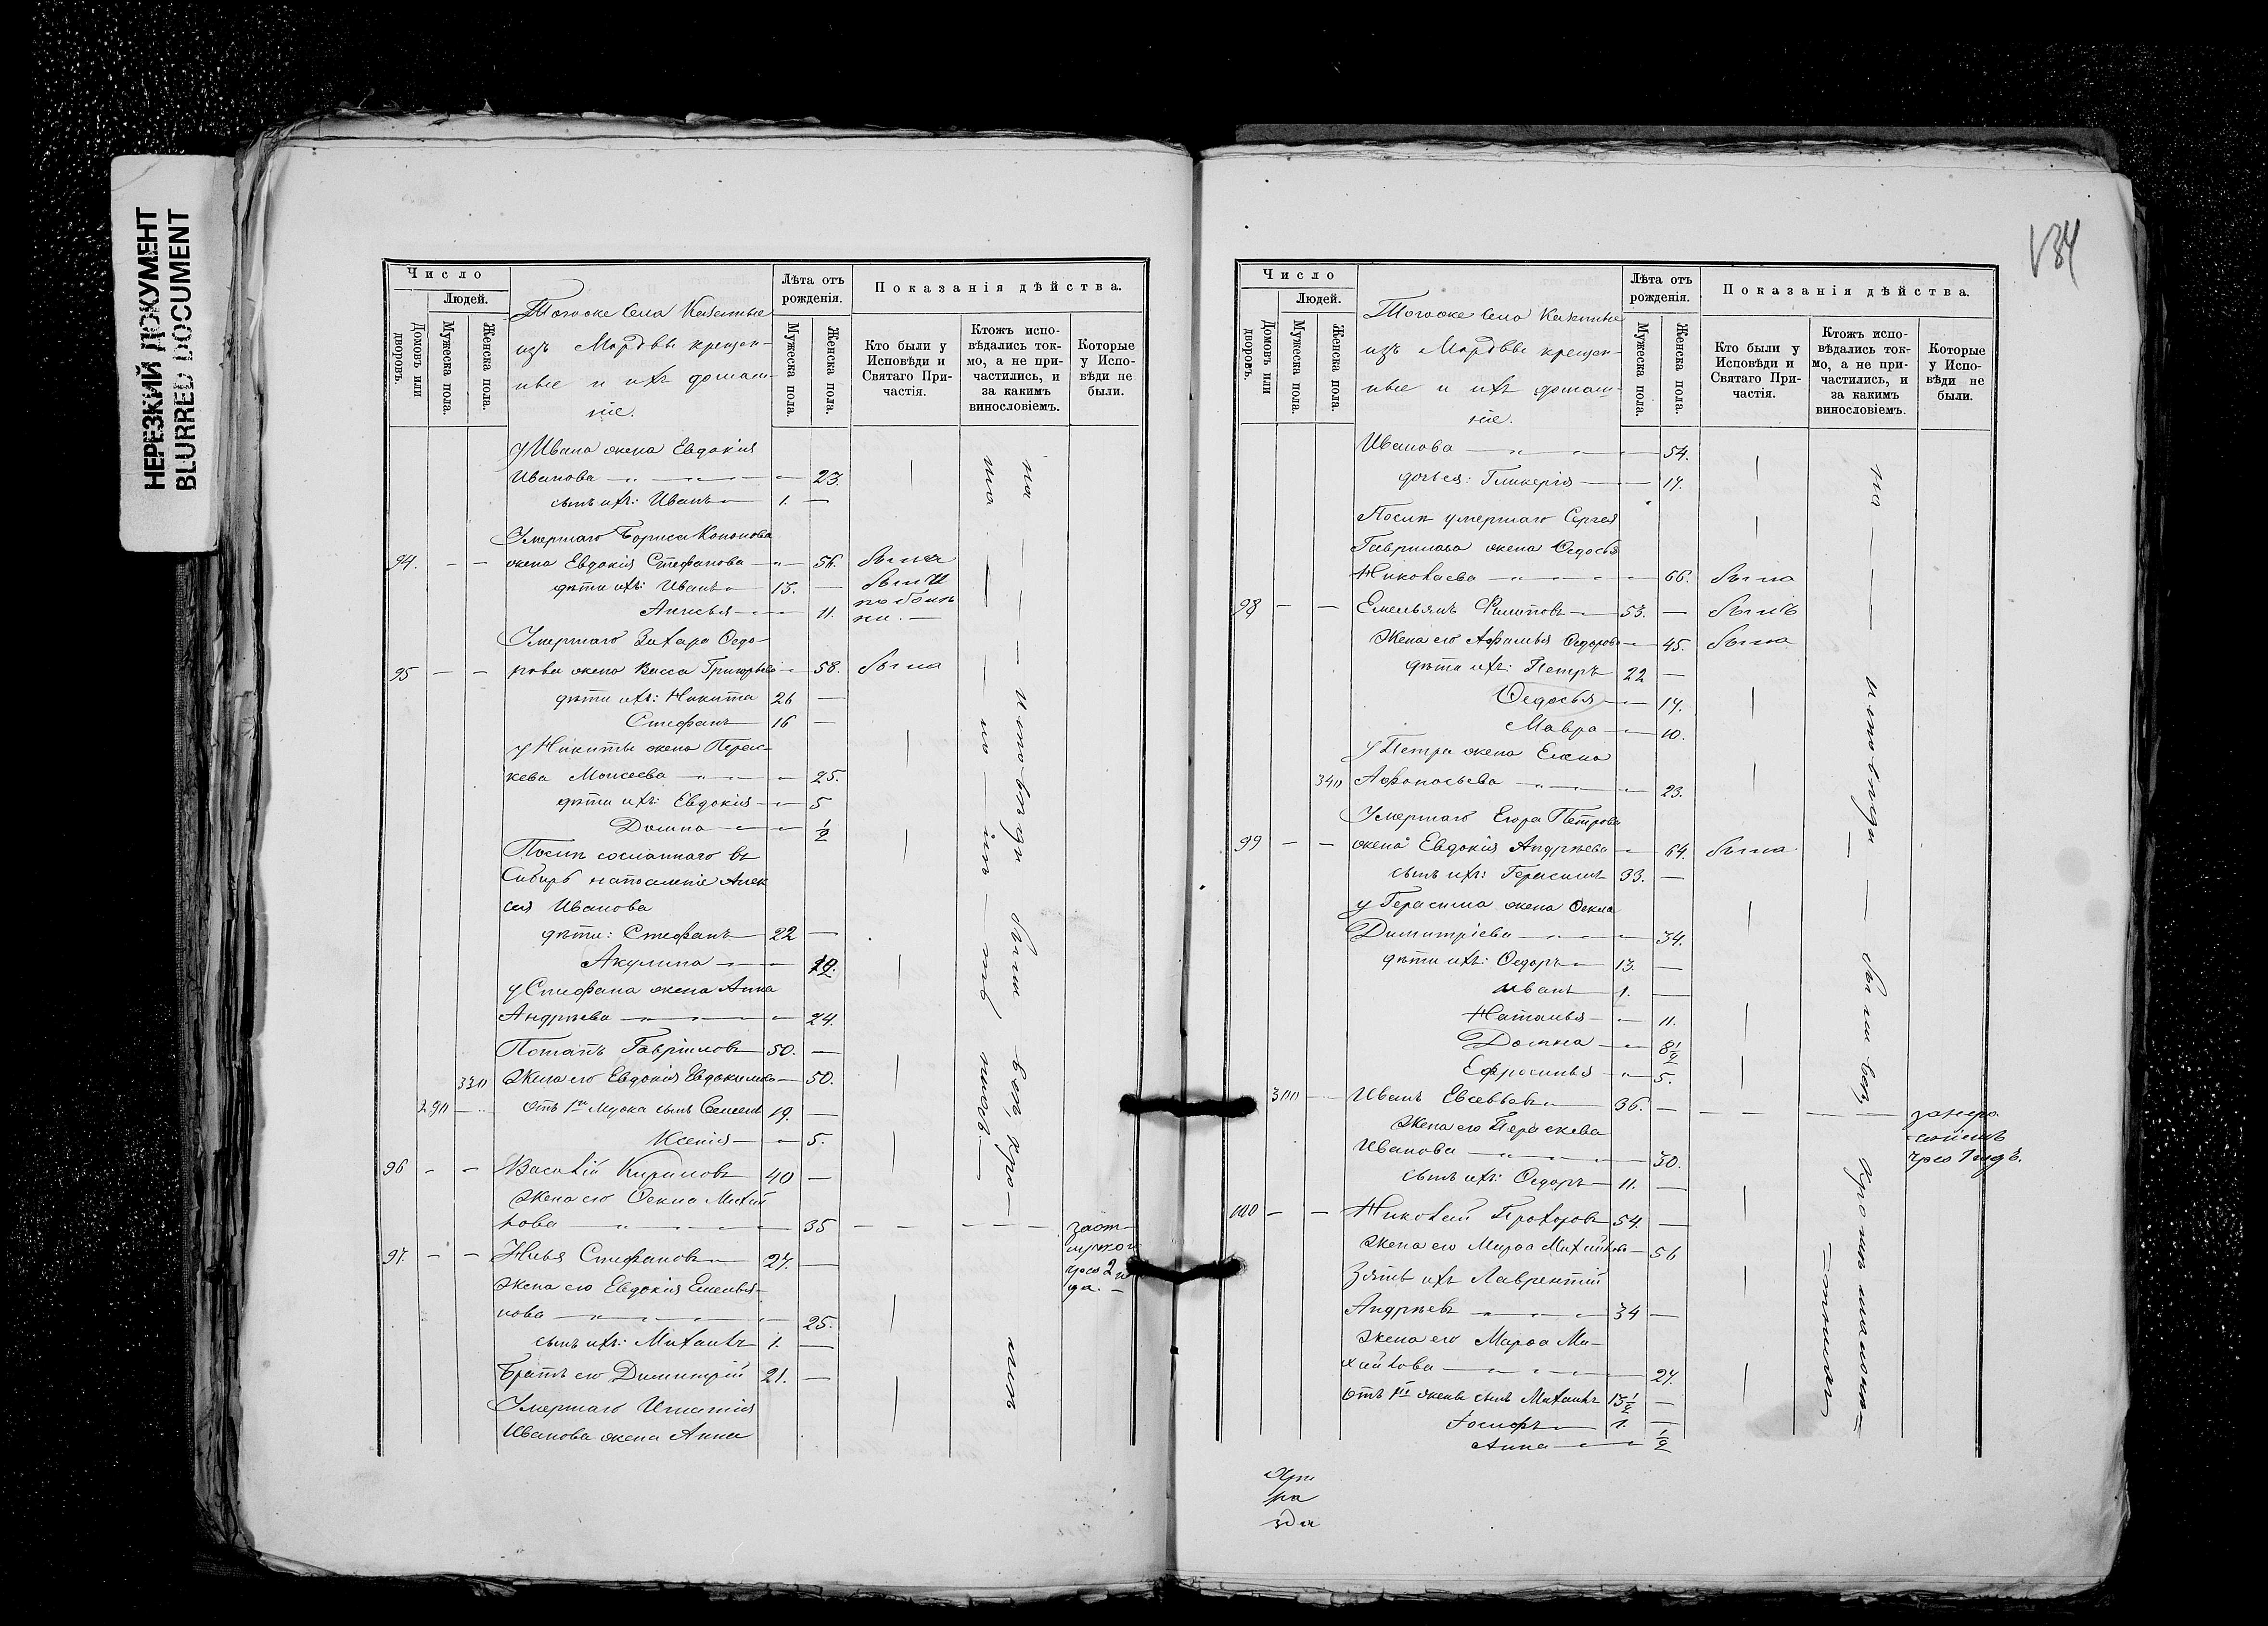 НЕРЕЗКИЙ ДОКУМЕНТ
BLURRED DOCUMENT
Число
Людей.
Домовъ или дворовъ.
Мужеска пола.
Женска пола.
Тогоже села
изъ Мордвы крещен-
ные и ихъ домаш-
ніе.
Лѣта отъ рожденія.
Мужеска пола.
Женска пола.
Показанія дѣйства.
Кто были у Исповѣди и Святаго Причастія.
Ктожъ исповѣдались токмо, а не причастились, и за какимъ винословіемъ.
Которые у Исповѣди не были.
у Ивана жена Евдокія
Иванова 23.
сынъ ихъ: Иванъ 1. —
Умершаго Бориса Кононова
94. — — жена Евдокія Стефанова 56. была
дѣти ихъ: Иванъ 13. — были
11.
Умершаго Захара Ѳедо-
95 — — рова жена Васса Григорьева 58. была
дѣти ихъ: Никита 26 —
Стефанъ 16 —
у Никиты жена Парас-
кева Моисеева 25.
дѣти ихъ: Евдокія 5
Домна 1/2
Послѣ сосланнаго въ
Сибирь на поселеніе Алек
сея Иванова
дѣти: Стефанъ 22 —
Акулина
у Стефана жена Анна
Андрѣева 24.
Потапъ Гавріиловъ 50. —
Жена его Евдокія Евдокимова 50.
отъ 1го мужа сынъ Семенъ 19. —
Ксенія 5.
96 — — Василій Кириловъ 40 —
Жена его Ѳекла Михай
лова 35
97. — — Илья Стефановъ 27. —
Жена его Евдокія Емелья-
нова 25.
сынъ ихъ: Михаилъ 1. —
Братъ его Димитрій 21. —
Умершаго Игнатія
Иванова жена Анна
на исповѣди были
134
Число
Людей.
Домовъ или дворовъ.
Мужеска пола.
Женска пола.
Тогоже села
изъ Мордвы крещен-
ные и ихъ домаш-
ніе.
Лѣта отъ рожденія.
Мужеска пола.
Женска пола.
Показанія дѣйства.
Кто были у Исповѣди и Святаго Причастія.
Ктожъ исповѣдались токмо, а не причастились, и за какимъ винословіемъ.
Которые у Исповѣди не были.
Иванова 54.
дочь ея: Гликерія
Послѣ умершаго Сергея
Гаврилова жена Ѳедосья
Николаева 66. была
98 — — Емельянъ Филиповъ 53. — былъ
Жена его Афимья Ѳедорова 45. была
дѣти ихъ: Петръ 22 —
Ѳедосья
Мавра 10.
у Петра жена Елена
Афонасьева 23.
Умершаго Егора Петрова
99 — — жена Евдокія Андрѣева 64. была
сынъ ихъ: Герасимъ 33. —
у Герасима жена Ѳекла
Димитріева 34.
дѣти ихъ: Ѳедоръ 13. —
Иванъ 1. —
Наталья 11.
Домна 8 1/2
Ефросинья 5.
Иванъ Евсевьевъ 36. —
Жена его Параскева
Иванова 30.
сынъ ихъ: Ѳедоръ 11. —
100 — — Николай Прохоровъ 54. —
Жена его Марѳа Михайлова 56
Зять ихъ Лаврентій
Андрѣевъ 34 —
Жена его Марѳа Ми-
хайлова 27.
отъ 1й жены сынъ Михаилъ 13 1/2 —
1. —
Анна 1/2
на исповѣди были